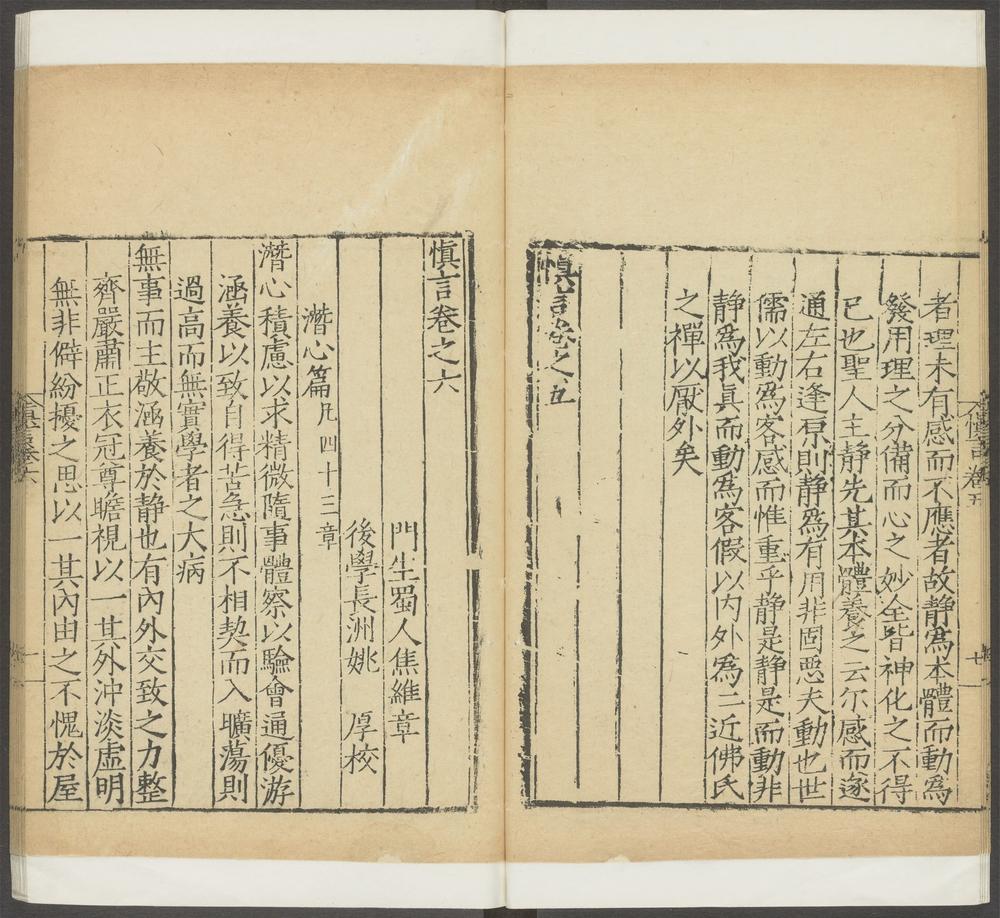 者理未有感而不應者故静為本體而動為
發用理之分備而心之妙全皆神化之不得
已也聖人主静先其本體養之云尔感而遂
通左右逢原則静為有用非固惡夫動也世
儒以動為客感而惟重乎静是静是而動非
静為我真而動為客假以内外為二近佛氏
之禪以厭外矣
慎言卷之五
慎言卷之六
門生蜀人焦維章
後學長洲姚　厚校
潛心篇凡四十三章
潛心積慮以求精微隨事體察以驗會通優游
涵養以致自得苦急則不相契而入曠蕩則
過高而無實學者之大病
無事而主敬涵養於静也有内外交致之力整
齊嚴肅正衣冠尊瞻視以一其外沖淡虛明
無非僻紛擾之思以一其内由之不愧於屋